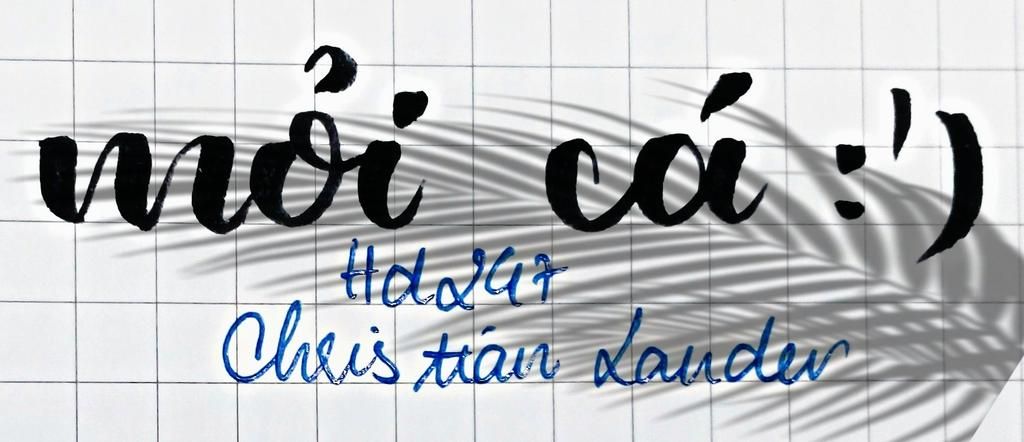 mỏi cá :')
Hd247
Christian Lander